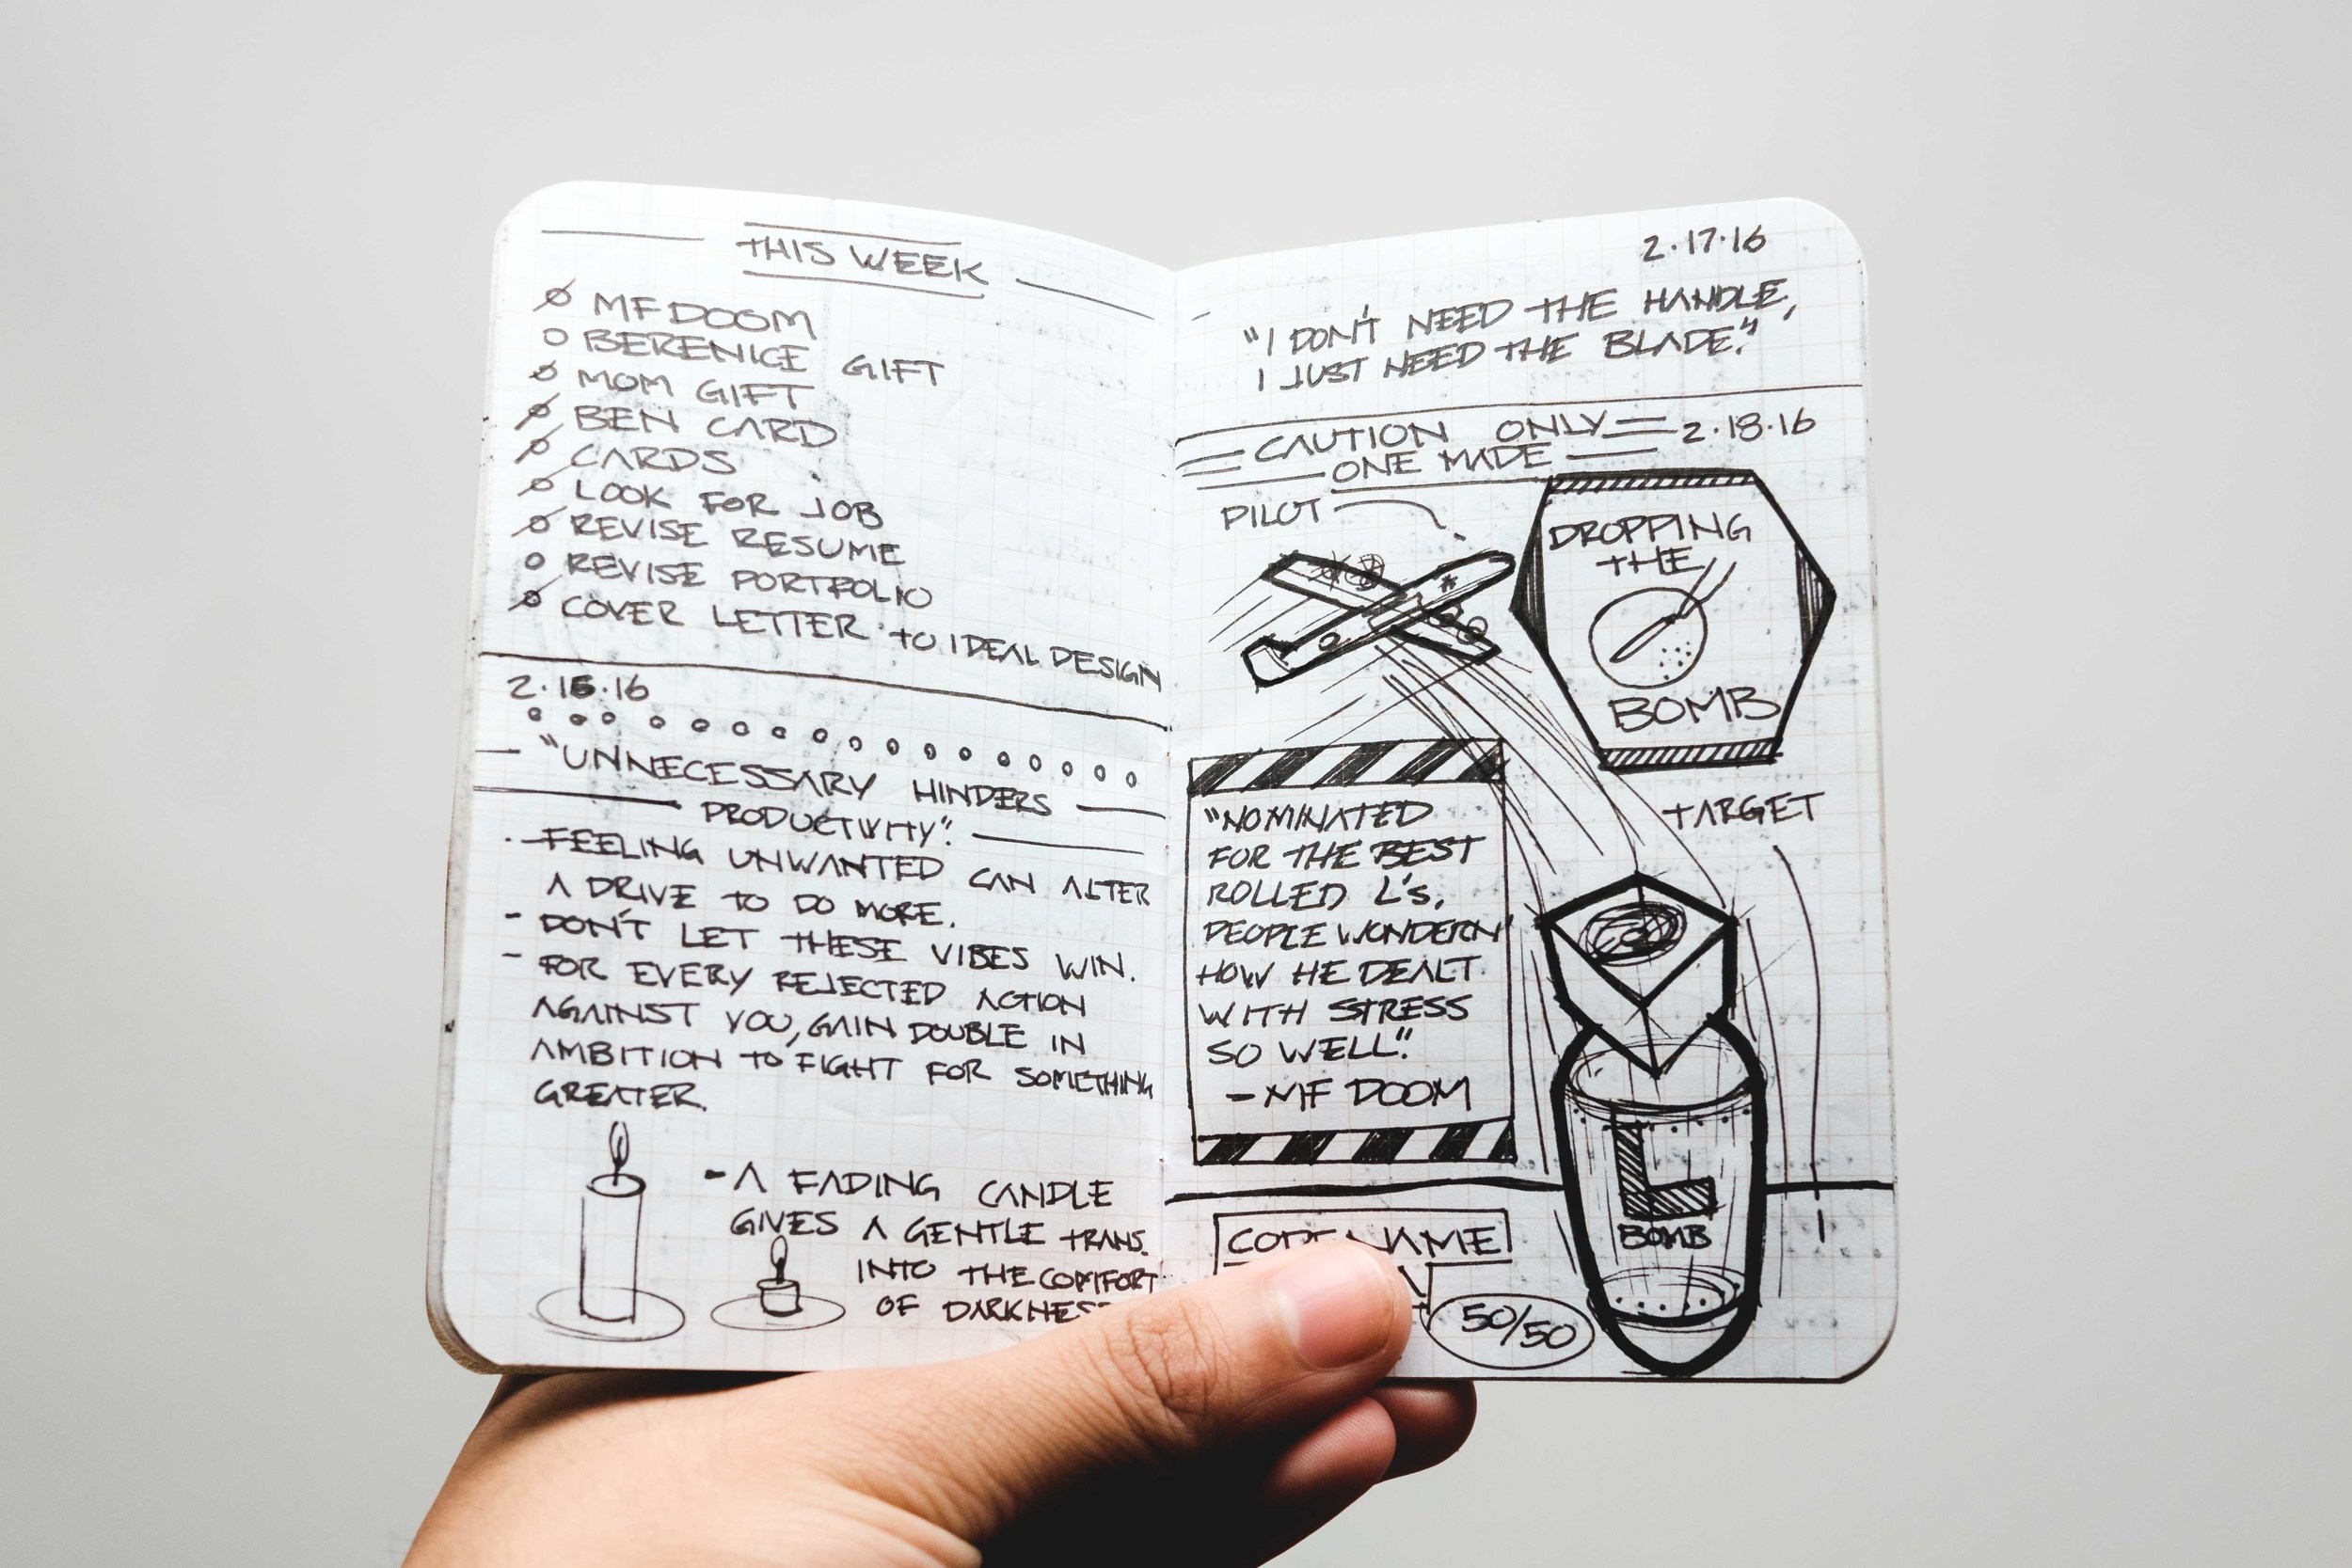 THIS WEEK
MF DOOM
BERENICE GIFT
MOM GIFT
BEN CARD
CARDS
LOOK FOR JOB
REVISE RESUME
REVISE PORTFOLIO
COVER LETTER TO IDEAL DESIGN
2.15.16
"UNNECESSARY HINDERS
PRODUCTIVITY".
- FEELING UNWANTED CAN ALTER
A DRIVE TO DO MORE.
- DON'T LET THESE VIBES WIN.
- FOR EVERY REJECTED ACTION
AGAINST YOU, GAIN DOUBLE IN
AMBITION TO FIGHT FOR SOMETHING
GREATER.
- A FADING CANDLE
GIVES A GENTLE TRANS.
INTO THE COMFORT
OF DARKNESS
2.17.16
"I DON'T NEED THE HANDLE,
I JUST NEED THE BLADE."
CAUTION ONLY 2.18.16
ONE MADE
PILOT
DROPPING
THE
BOMB
TARGET
"NOMINATED
FOR THE BEST
ROLLED L's,
PEOPLE WONDERN'
HOW HE DEALT
WITH STRESS
SO WELL".
- MF DOOM
L
BOMB
CODE NAME
50/50